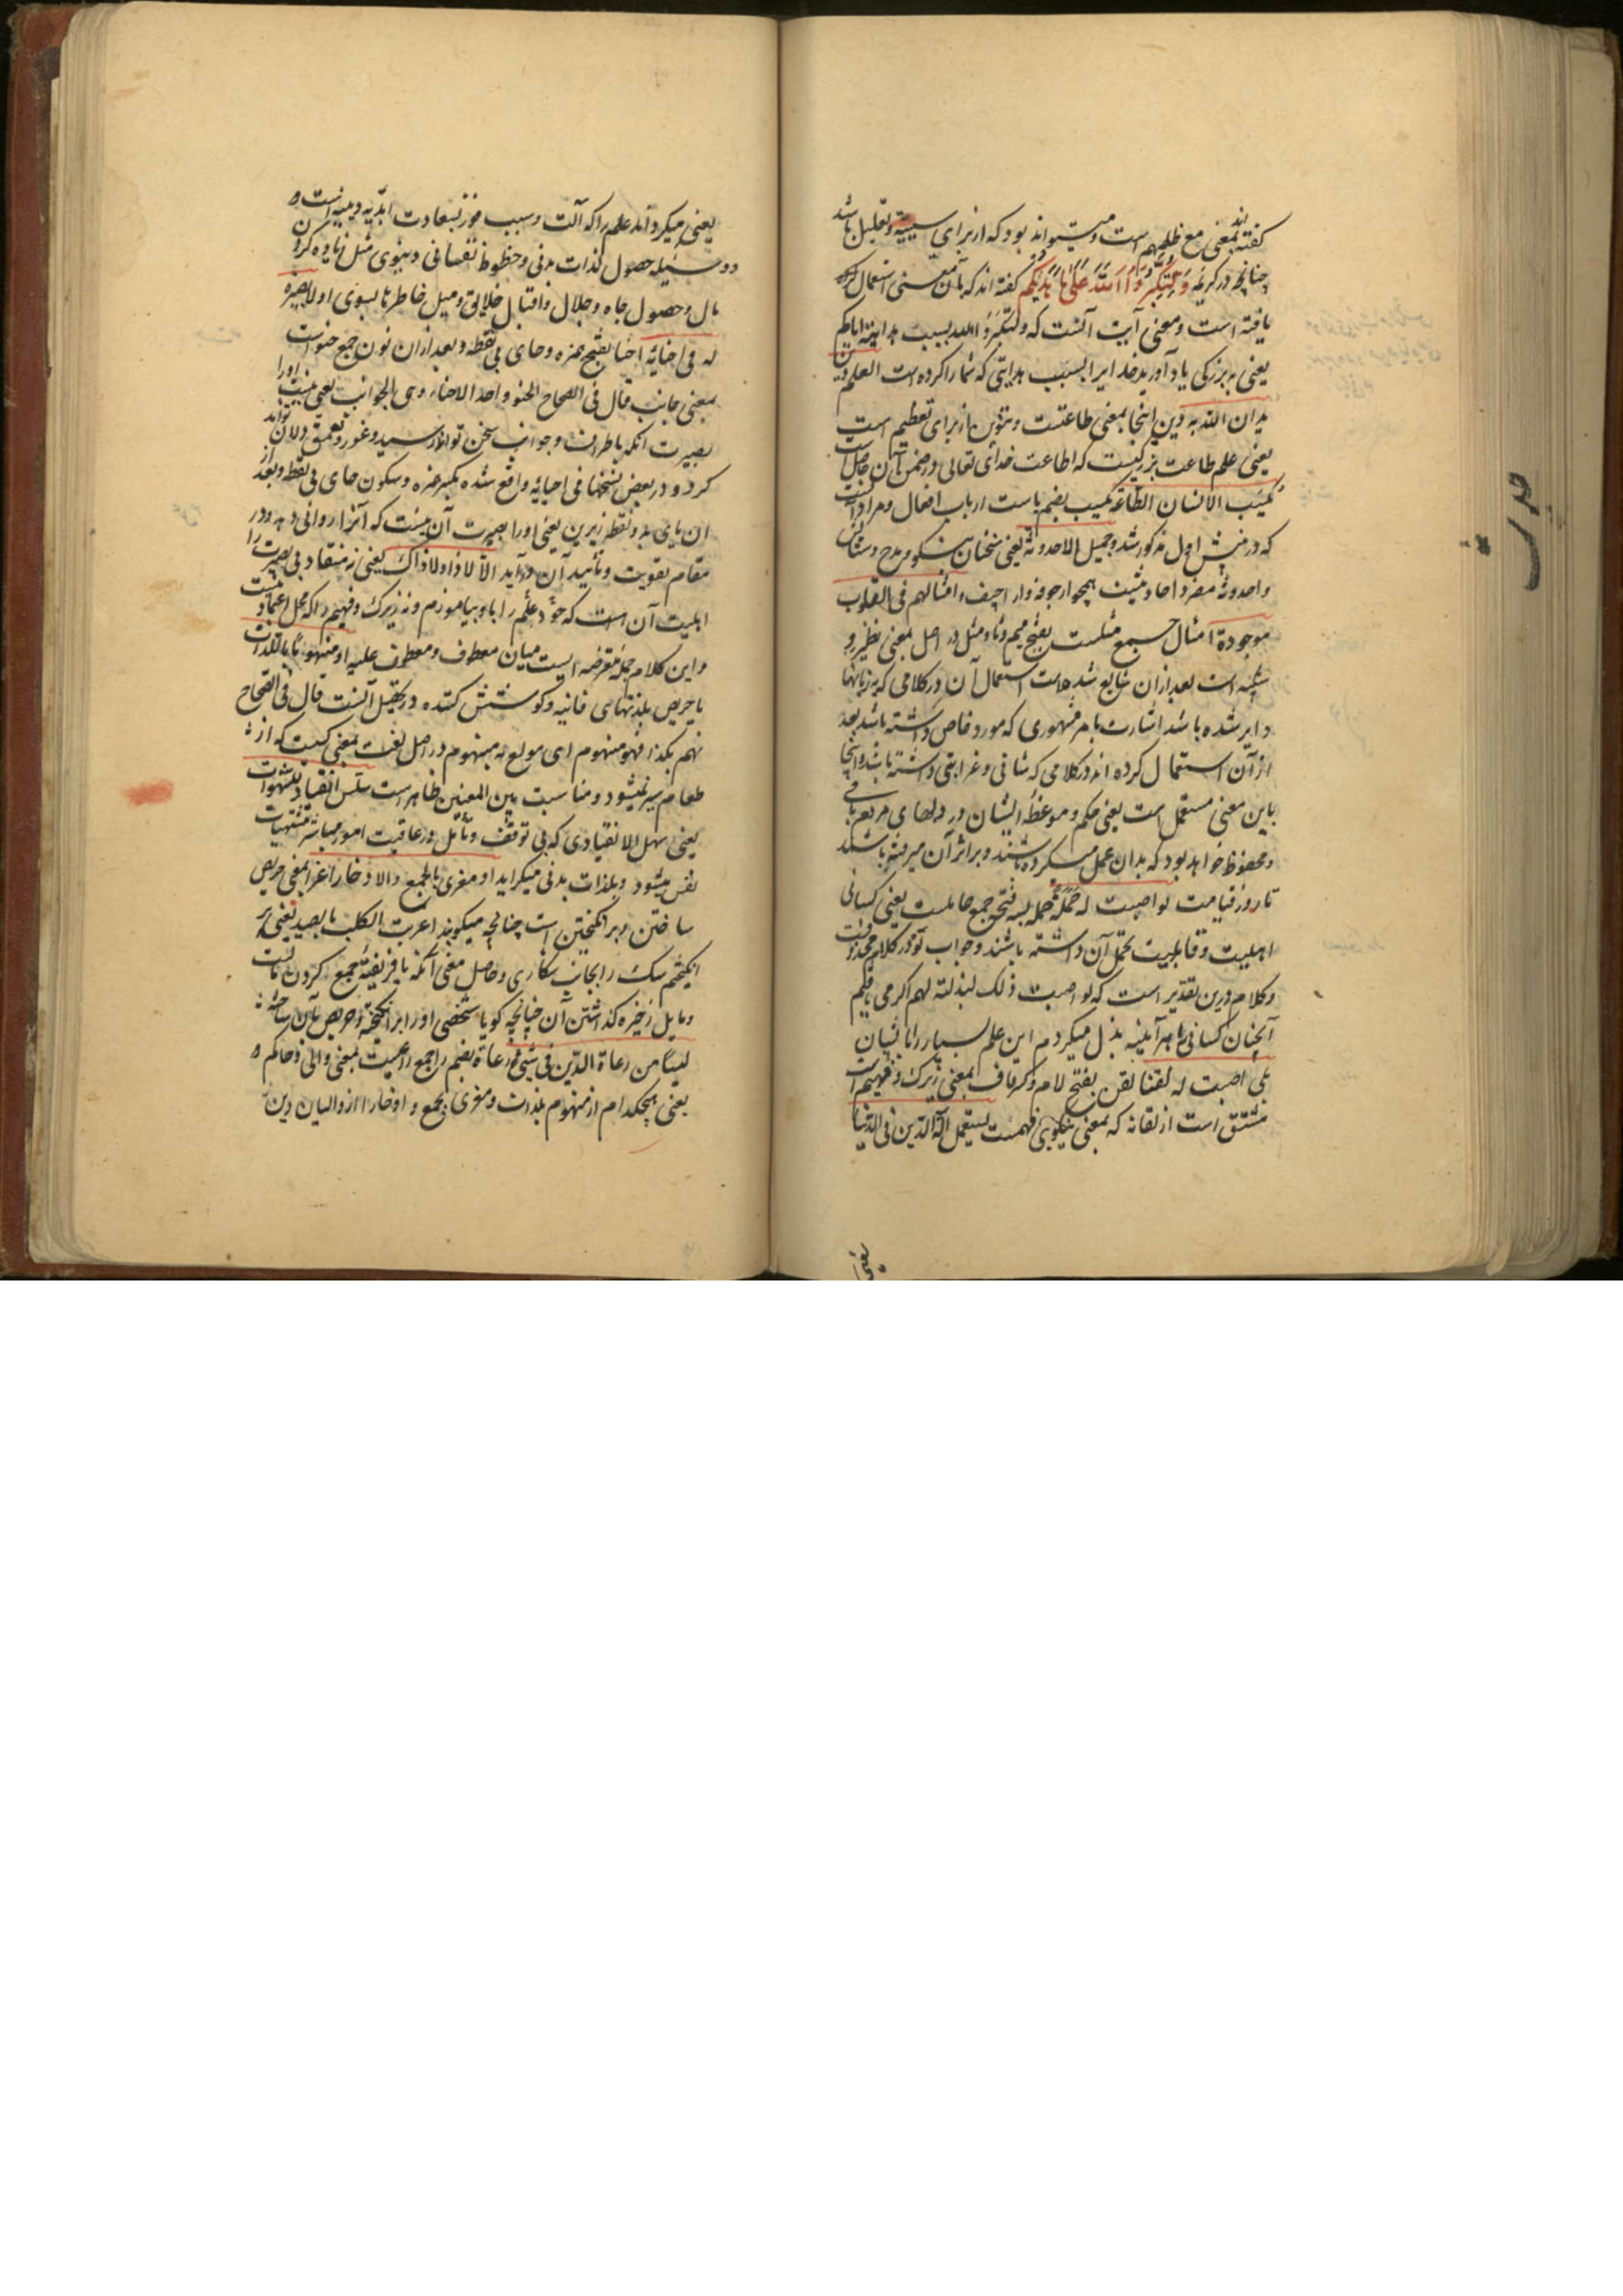 گفته‌اند بمعنی مع ظلمهم است و میتواند بود که از برای سببیة و تعلیل باشد
چنانچه در کریمه وَلِتُكَبِّرُوا اللّٰهَ عَلَىٰ مَا هَدٰیكُمْ گفته اند که بآن معنی استعمال
یافته است و معنی آیت آنست که ولتکبروا الله بسبب هدایته ایاکم
یعنی به بزرکی یاد آورید خدایرا بسبب هدایتی که شما را کرده است العلم دین
یدان الله به دین اینجا بمعنی طاعتست و تنوین از برای تعظیم است
یعنی علم طاعت بزرکیست که اطاعت خدای تعالی در ضمن آن حاصل است
یُکسِب الانسان الطّاعة یکسب بضم یاست از باب افعال و مراد آنست
که در پیش اول مذکور شد و جمیل الاحدوثة یعنی سخنان نیکو و مدح و ستایش
واحدوثه مفرد احادیثست همچو ارجوفه و اراجیف و امثالهم فی القلوب
موجودة امثال جمع مثلست بفتح میم و ثا و مثل در اصل بمعنی نظیر و
شبیه است بعد ازان شایع شده است استعمال آن در کلامی که بر زبانها
دایر شده باشد اشارت بامر مشهوری که مورد خاص داشته باشد بعد
از آن استعمال کرده اند در کلامی که شانی و غرابتی داشته باشد و اینجا
باین معنی مستعمل است یعنی حکم و موعظهٔ ایشان در دلهای مردم باقی
و محفوظ خواهد بود که بدان عمل میکرده باشند و بر اثر آن میرفته باشند
تا روز قیامت لو اصبت له حَمَلَةً حمله بسه فتح جمع حاملست یعنی کسانی
اهلیت و قابلیت تحمل آن داشته باشند و جواب لو در کلام محذوفست
و کلام درین تقدیر است که لو اصبت ذلک لبذلته لهم اکر می یافتم
آنچنان کسانی را هر آینه بذل میکردم این علم بسیار را بایشان
بلی اصبت له لقنا لقن بفتح لام و کسر قاف بمعنی زیرک و فهیم است
مشتق است از لقانه که بمعنی نیکویی فهمست یستعمل آلة الدین فی الدنیا
یعنی
یعنی میکرداند علم را که آلت و سبب فوز بسعادت ابدیه دینیه است
و وسیله حصول لذات بدنی و حظوظ نفسانی دنیوی مثل زیاده کردن
مال و حصول جاه و جلال و اقبال خلایق و میل خاطرها بسوی او لا بصیرة
له فی احنائه احنا بفتح همزه و حای بی نقطه و بعد ازان نون جمع حنو است
بمعنی جانب قال فی الصحاح الحنو واحد الاحناء وهی الجوانب یعنی نیست او را
بصیرت آنکه باطراف و جوانب سخن تواند رسید و غور و تعمق در آن تواند
کرد و در بعض نسخها فی احیائه واقع شده بکسر همزه و سکون حای بی نقطه و بعد از
ان یای بدو نقطه زیرین یعنی او را بصیرت آن نیست که آنرا روانی دهد و در
مقام تقویت و تأیید آن درآید الّا لا ذا ولا ذاک یعنی نه منقاد بی بصیرت را
اهلیت آن است که خود علم را باو بیاموزم و نه زیرک و فهیم را که محل اعتماد نیست
و این کلام جمله معترضه ایست میان معطوف و معطوف علیه او منهوما باللذات
یا حریص بلذتهای فانیه و کوشش کننده در تحصیل آنست قال فی الصحاح
نهم بکذا فهو منهوم ای مولع به منهوم در اصل لغت بمعنی کسیست که از
طعام سیر نمیشود و مناسبت بین المعنیین ظاهر است سلس القیاد للشهوات
یعنی سهل الانقیادی که بی توقف و تأمل در عاقبت امور مباشر مشتهیات
نفس میشود و بلذات بدنی میکراید او مغری بالجمع والادخار اغرا بمعنی حریص
ساختن و برانکیختن است چنانچه میکویند اغریت الکلب بالصید یعنی بر
انکیختم سک را بجانب شکاری و حاصل معنی آنکه یا فریفته بجمع کردن مالست
و مایل ذخیره کذاشتن آن چنانچه کویا شخصی او را بر انکیخته و حریص بآن ساخته
لیسا من رعاة الدین فی شیء رعاة بضم را جمع راعیست بمعنی والی و حاکم
یعنی هیچکدام از منهوم بلذات و مغری بجمع و ادخار از والیان دین